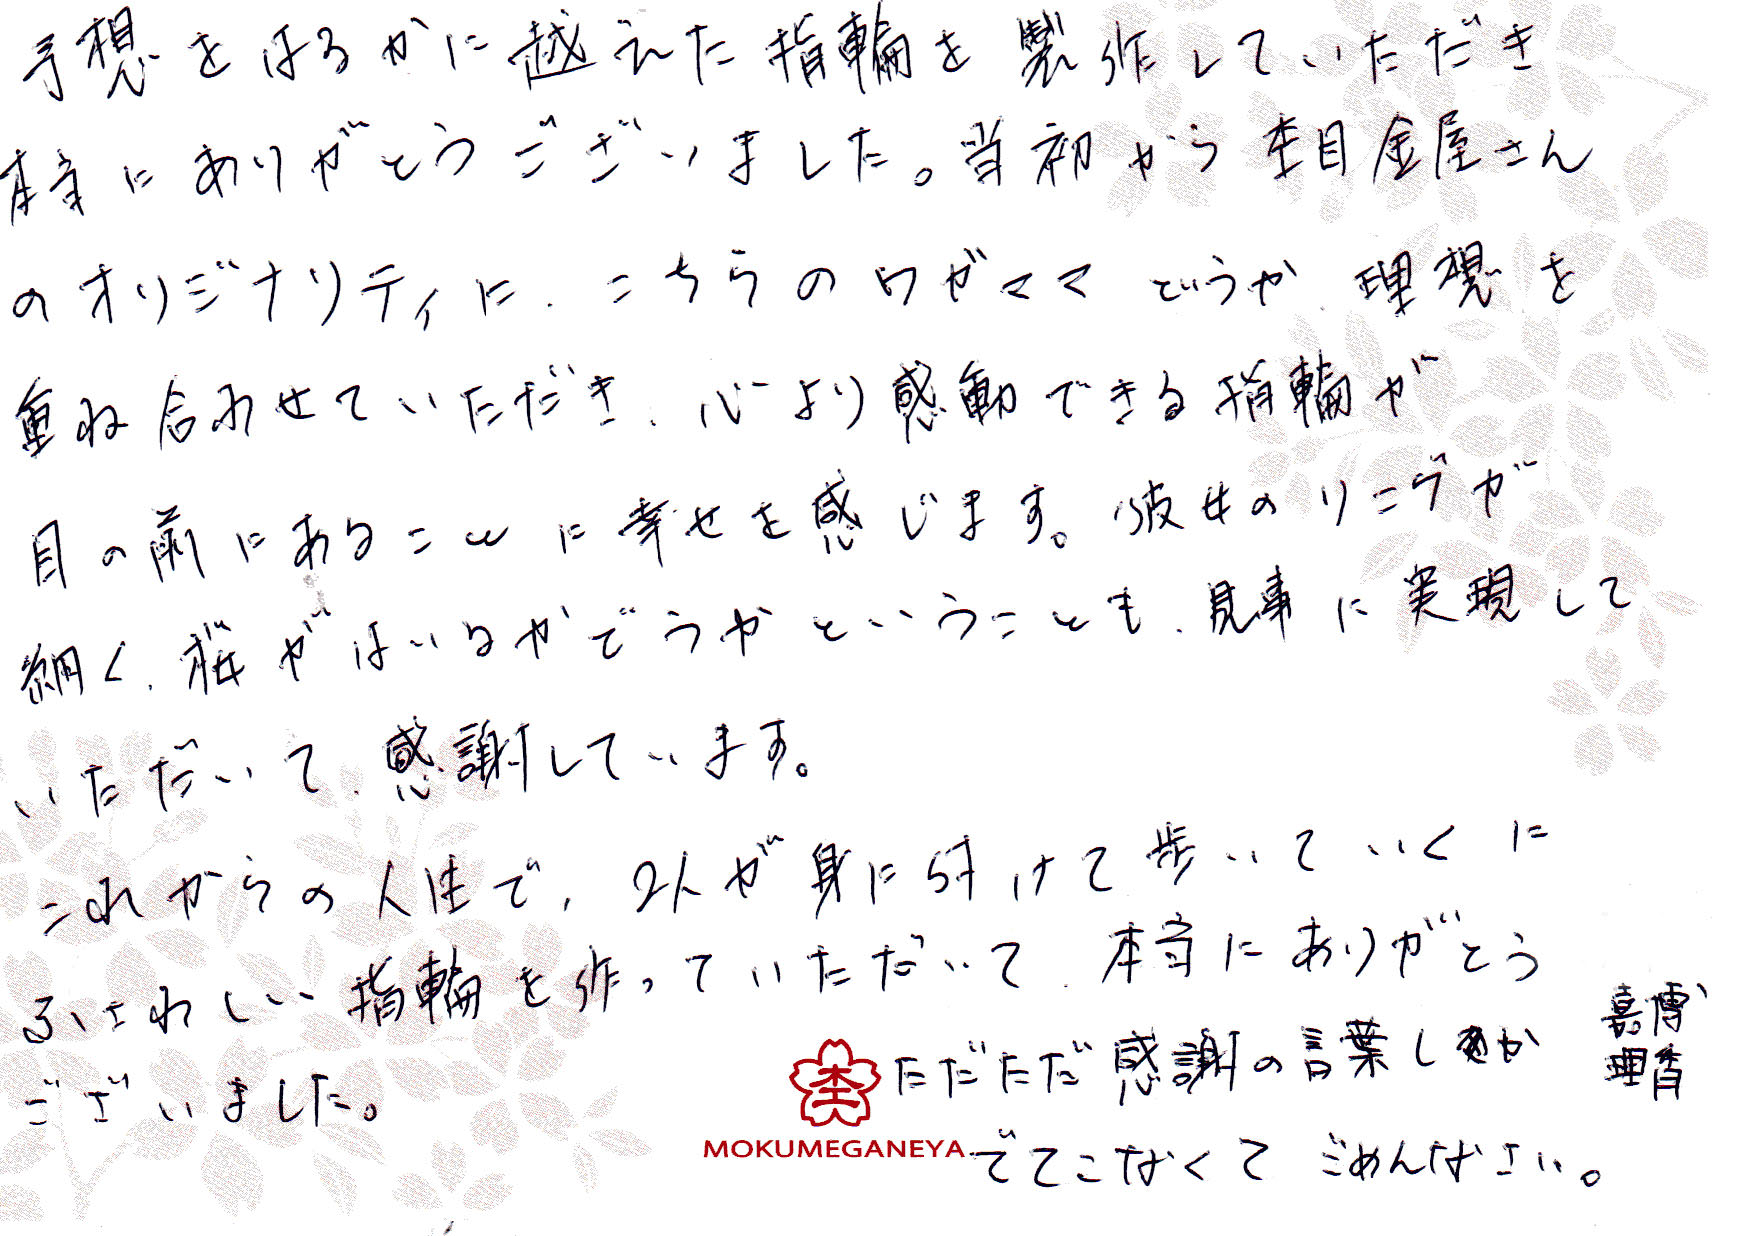 予想をはるかに越えた指輪を製作していただき
本当にありがとうございました。当初から杢目金屋さん
のオリジナリティに、こちらのワガママというか、理想を
重ね合わせていただき、心より感動できる指輪が
目の前にあることに幸せを感じます。彼女のリングが
細く、桜がはいるかどうかということも、見事に実現して
いただいて、感謝しています。
これからの人生で、2人が身に付けて歩いていくに
ふさわしい指輪を作っていただいて、本当にありがとう
ございました。
ただただ感謝の言葉しか
でてこなくてごめんなさい。
嘉博
理香
杢
MOKUMEGANEYA